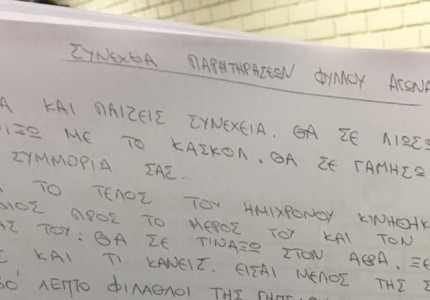 ΣΥΝΕΧΕΙΑ ΠΑΡΑΤΗΡΗΣΕΩΝ ΦΥΛΛΟΥ ΑΓΩΝΑ
Α ΚΑΙ ΠΑΙΖΕΙΣ ΣΥΝΕΧΕΙΑ. ΘΑ ΣΕ ΛΙΩΣΩ
ΙΞΩ ΜΕ ΤΟ ΚΑΣΚΟΛ. ΘΑ ΣΕ ΓΑΜΗΣΩ
ΣΥΜΜΟΡΙΑ ΣΑΣ.
ΤΟ ΤΕΛΟΣ ΤΟΥ ΗΜΙΧΡΟΝΟΥ ΚΙΝΗΘΗΚ
ΙΟΣ ΠΡΟΣ ΤΟ ΜΕΡΟΣ ΤΟΥ ΚΑΙ ΤΟΝ
ΑΣ ΤΟΥ: ΘΑ ΣΕ ΤΙΝΑΞΩ ΣΤΟΝ ΑΕΡΑ. ΞΕ
Σ ΚΑΙ ΤΙ ΚΑΝΕΙΣ. ΕΙΣΑΙ ΜΕΛΟΣ ΤΗΣ Σ
ΛΕΠΤΟ ΦΙΛΑΘΛΟΙ ΤΗΣ ΓΗΠΕ